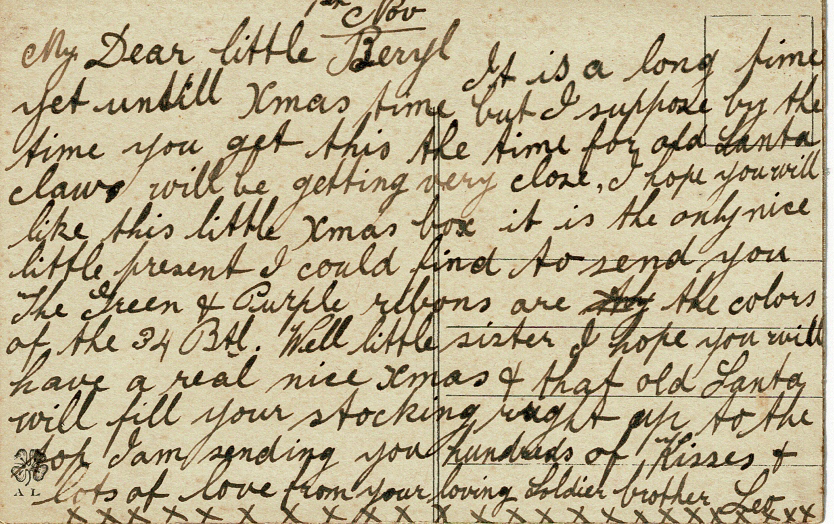 1st Nov
My Dear little Beryl
It is a long time
yet untill Xmas time but I suppose by the
time you get this the time for old Santa
claws will be getting very close, I hope you will
like this little Xmas box it is the only nice
little present I could find to send you
The Green & Purple ribons are the colors
of the 34 Btl. Well little sister I hope you will
have a real nice xmas & that old Santa
will fill your stocking right up to the
top I am sending you hundreds of Kisses &
lots of love from your loving Soldier brother Leo
A L
x x x x x x x x x x x x x x x x x x x x x x x